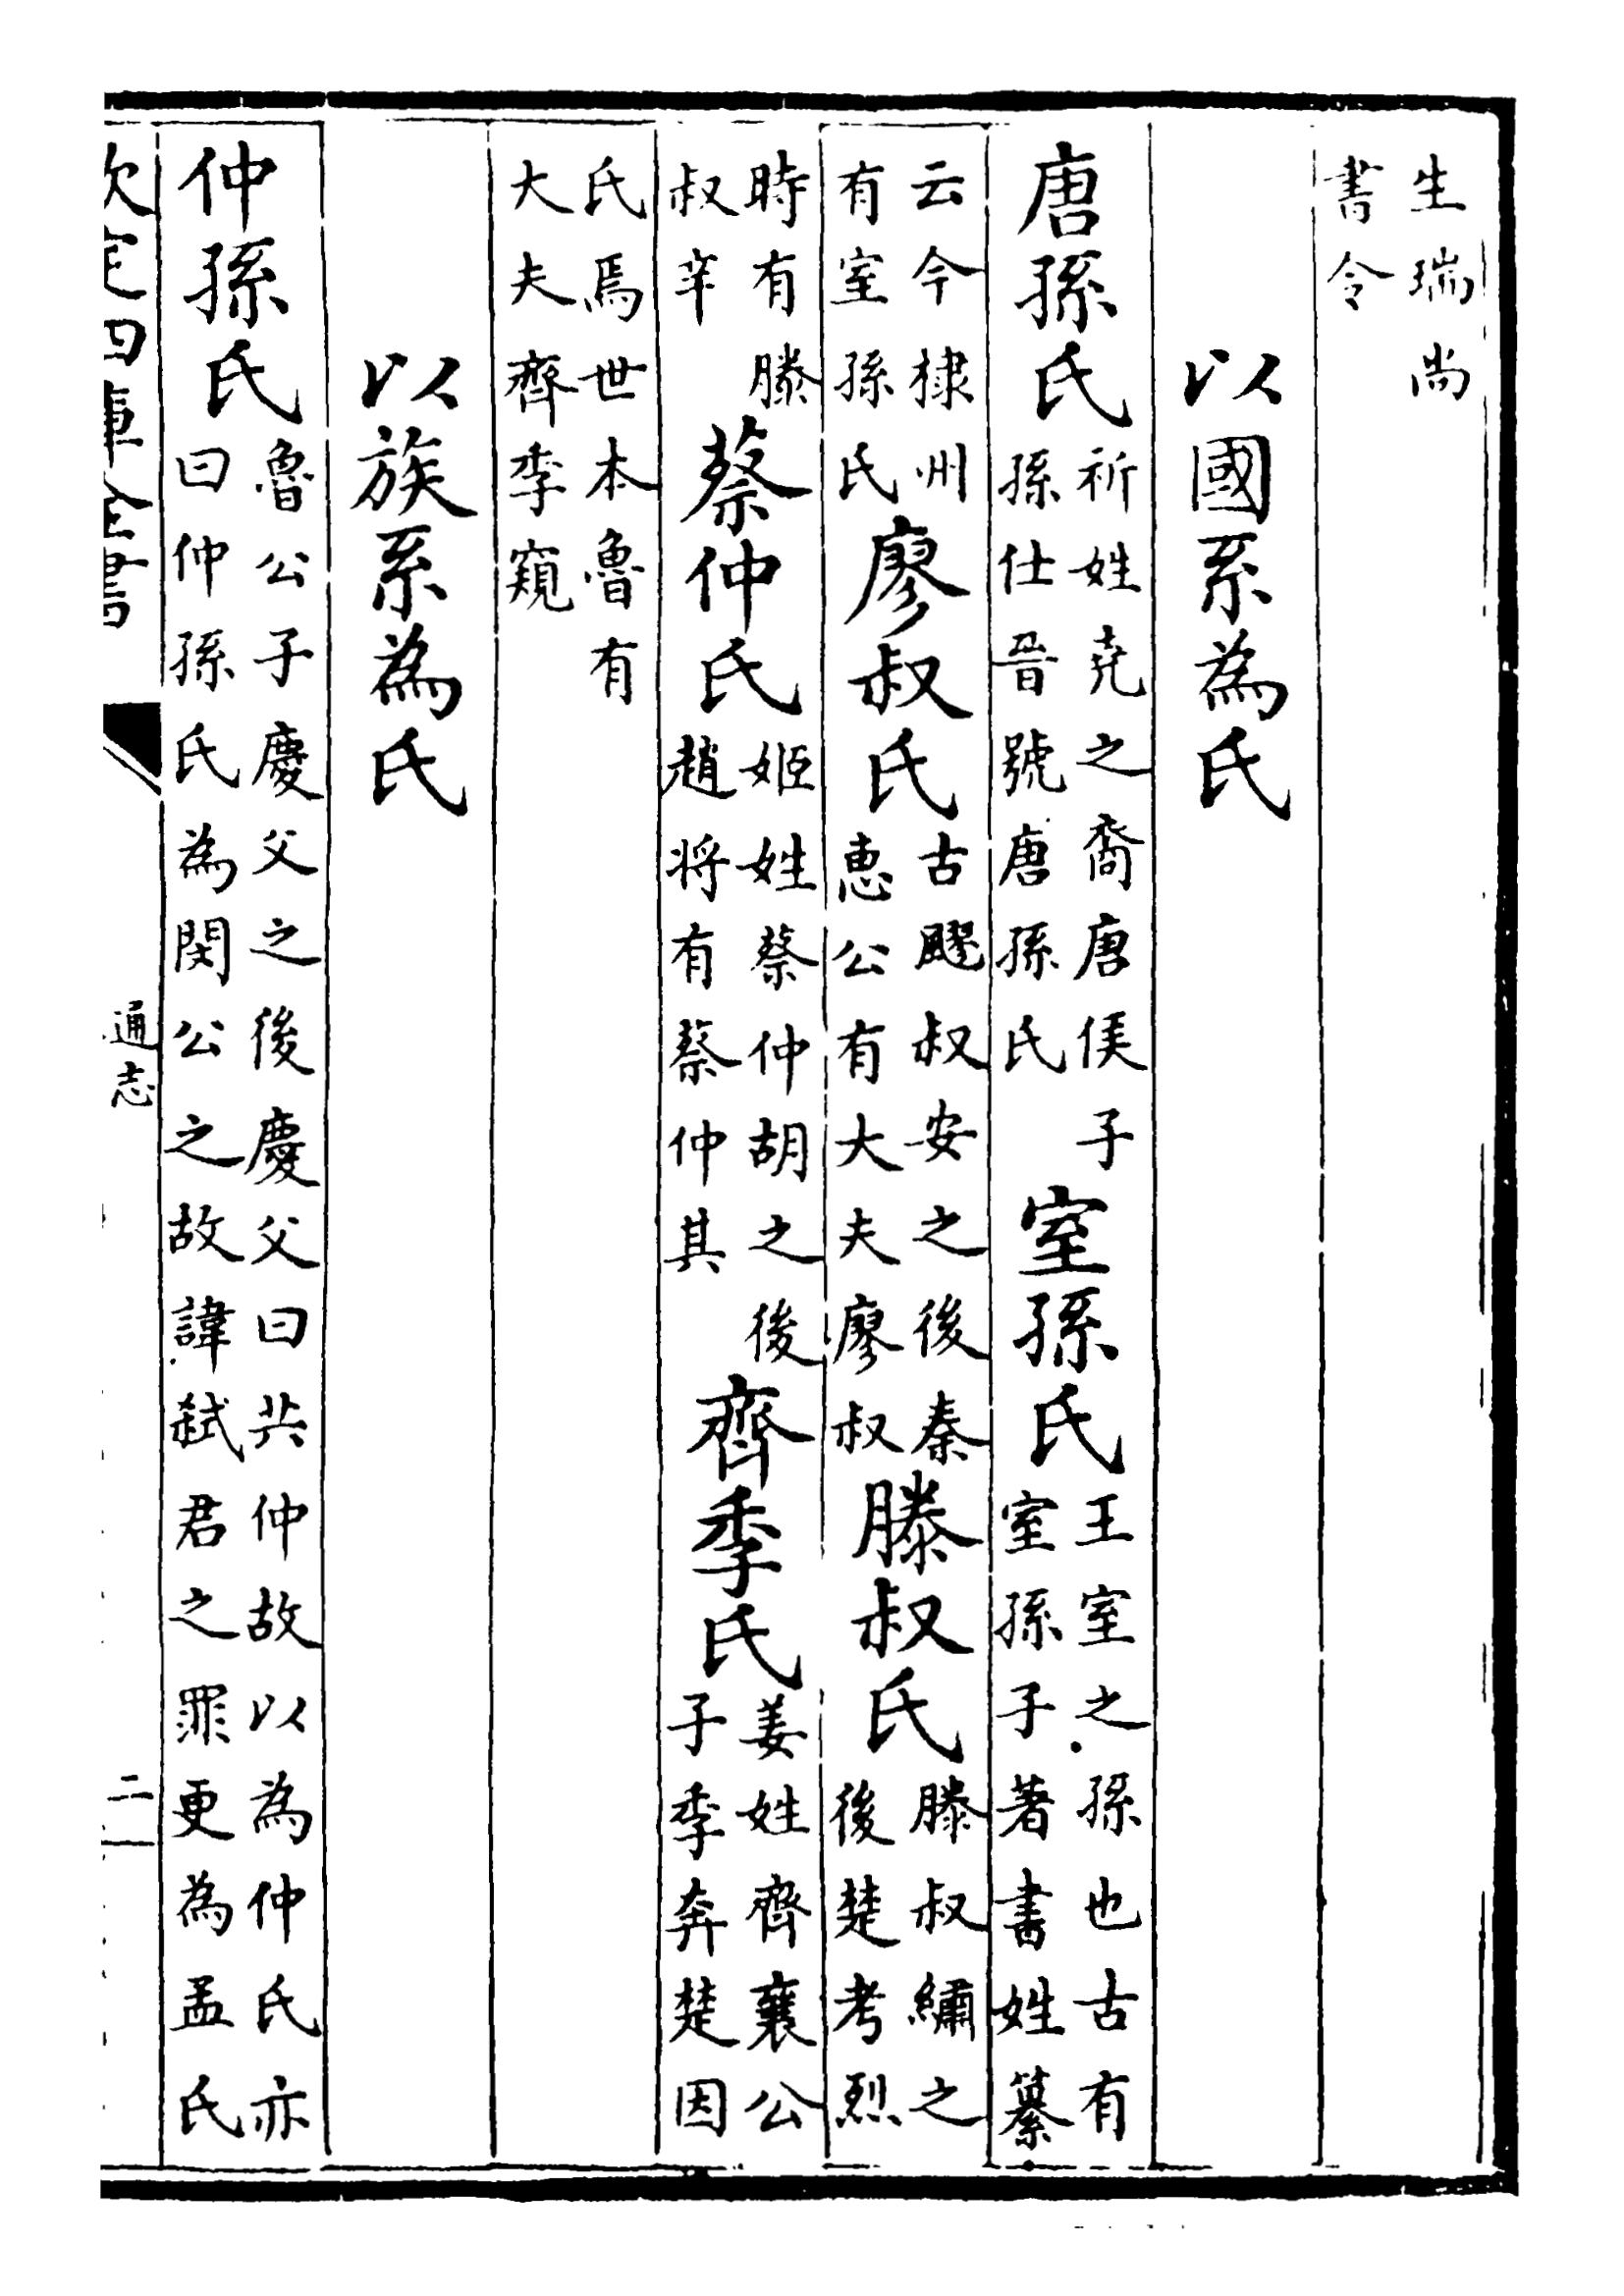 生瑞尚
書令
以國系為氏
唐孫氏
祈姓堯之裔唐侯子
孫仕晉號唐孫氏
室孫氏
王室之孫也古有
室孫子著書姓纂
云今棣州
有室孫氏
廖叔氏
古飂叔安之後秦
惠公有大夫廖叔
滕叔氏
滕叔繡之
後楚考烈
時有滕
叔辛
蔡仲氏
姬姓蔡仲胡之後
趙将有蔡仲其
齊季氏
姜姓齊襄公
子季奔楚因
氏焉世本魯有
大夫齊季窺
以族系為氏
仲孫氏
魯公子慶父之後慶父曰共仲故以為仲氏亦
曰仲孫氏為閔公之故諱弑君之罪更為孟氏
欽定四庫全書
通志
二